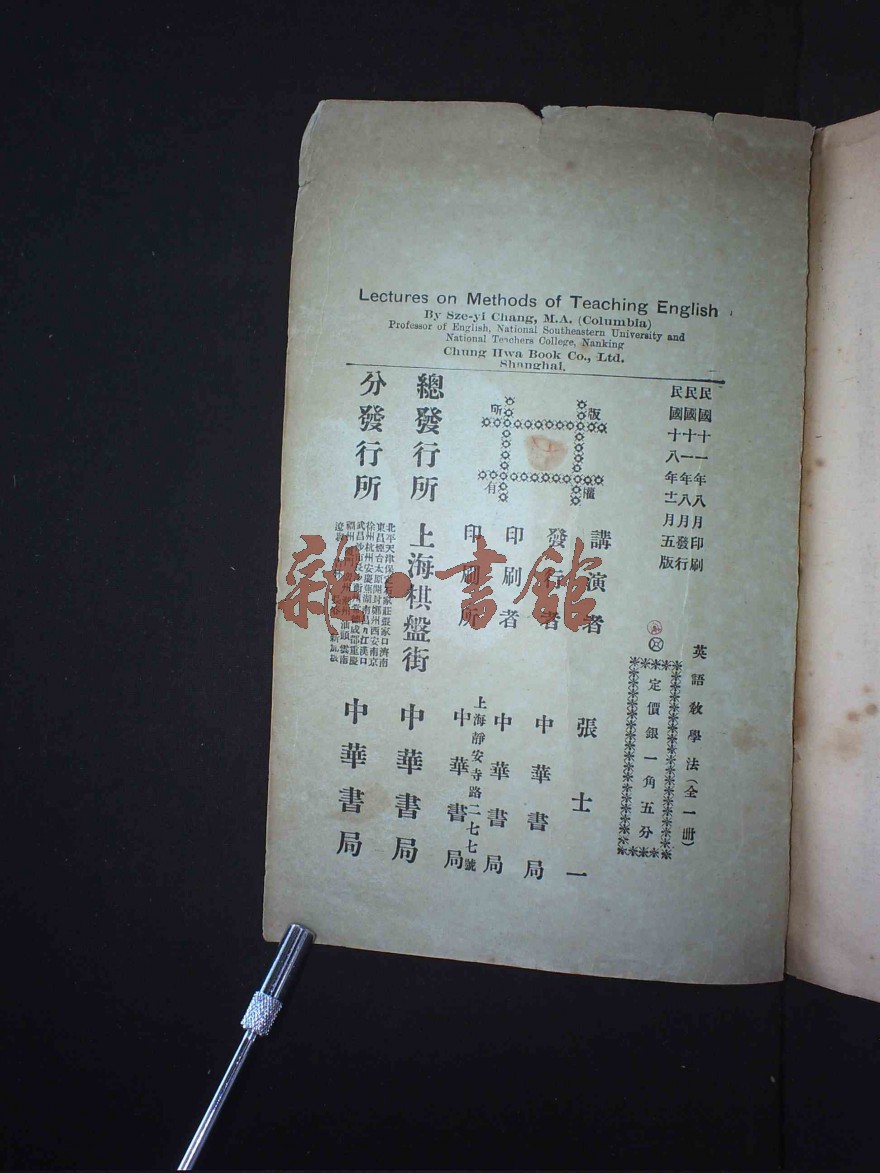 Lectures on Methods of Teaching English
By Sze-yi Chang, M.A. (Columbia)
Professor of English, National Southeastern University and
National Teachers College, Nanking
Chung Hwa Book Co., Ltd.
Shanghai.
民國十一年八月印刷
民國十一年八月發行
民國十八年十二月五版
英語教學法(全一冊)
定價銀一角五分
版權所有
講演者 張士一
發行者 中華書局
印刷者 中華書局
印刷所 上海靜安寺路二七七號 中華書局
總發行所 上海棋盤街 中華書局
分發行所 中華書局
北平天津保定
雜·書館